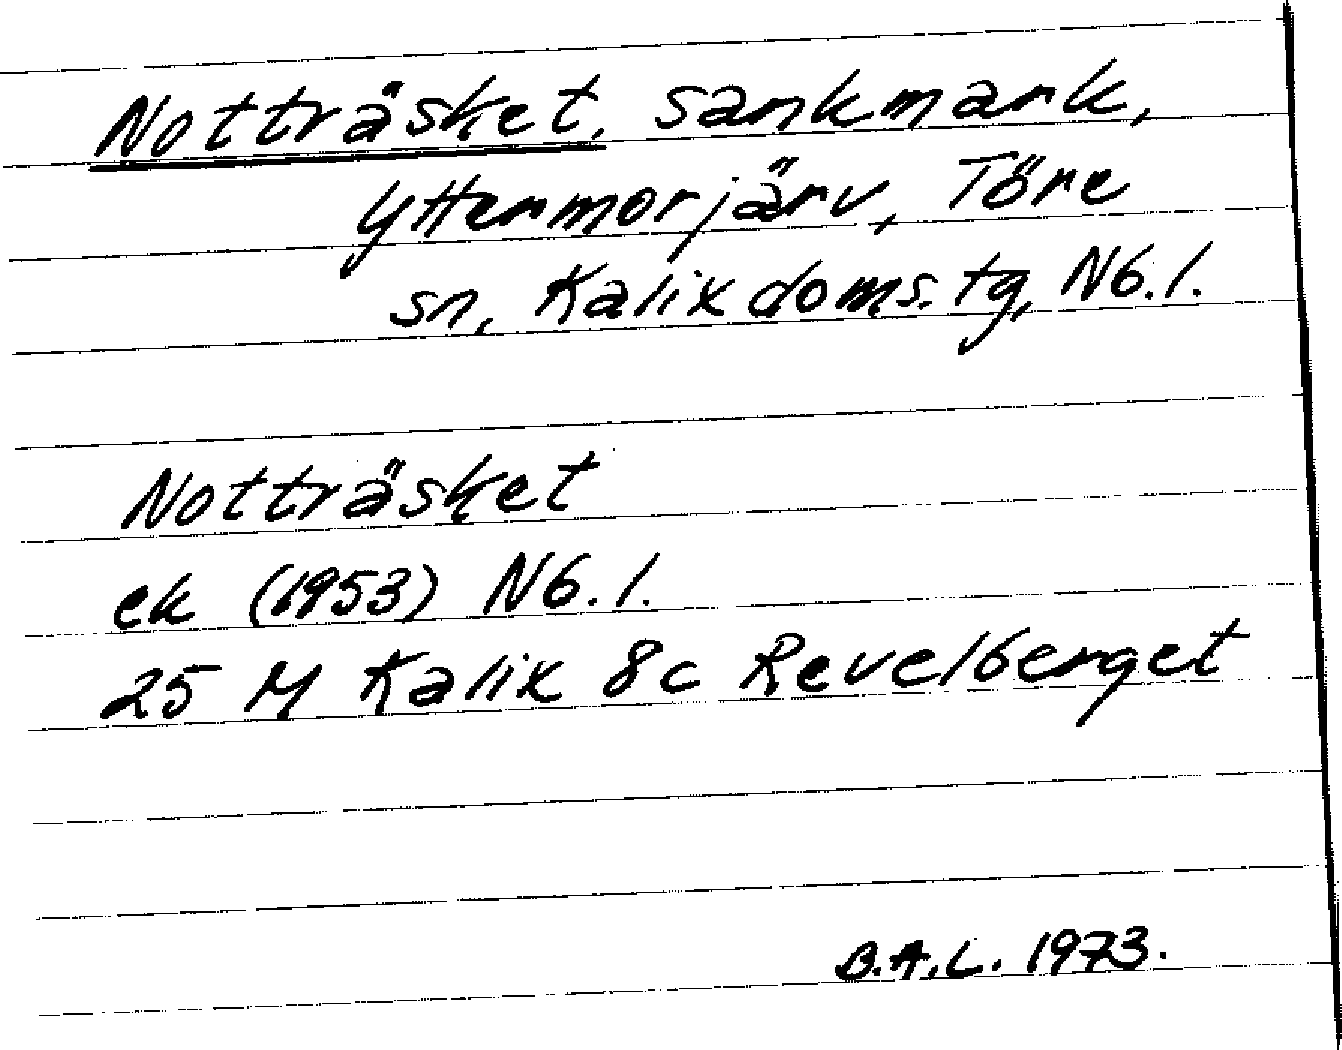 Notträsket, sankmark,
Yttermorjärv, Töre
sn, Kalix doms. tg, Nb. l.
Notträsket
ek (1953) Nb. l.
25 M Kalix 8c Revelberget
B.A.L. 1973.